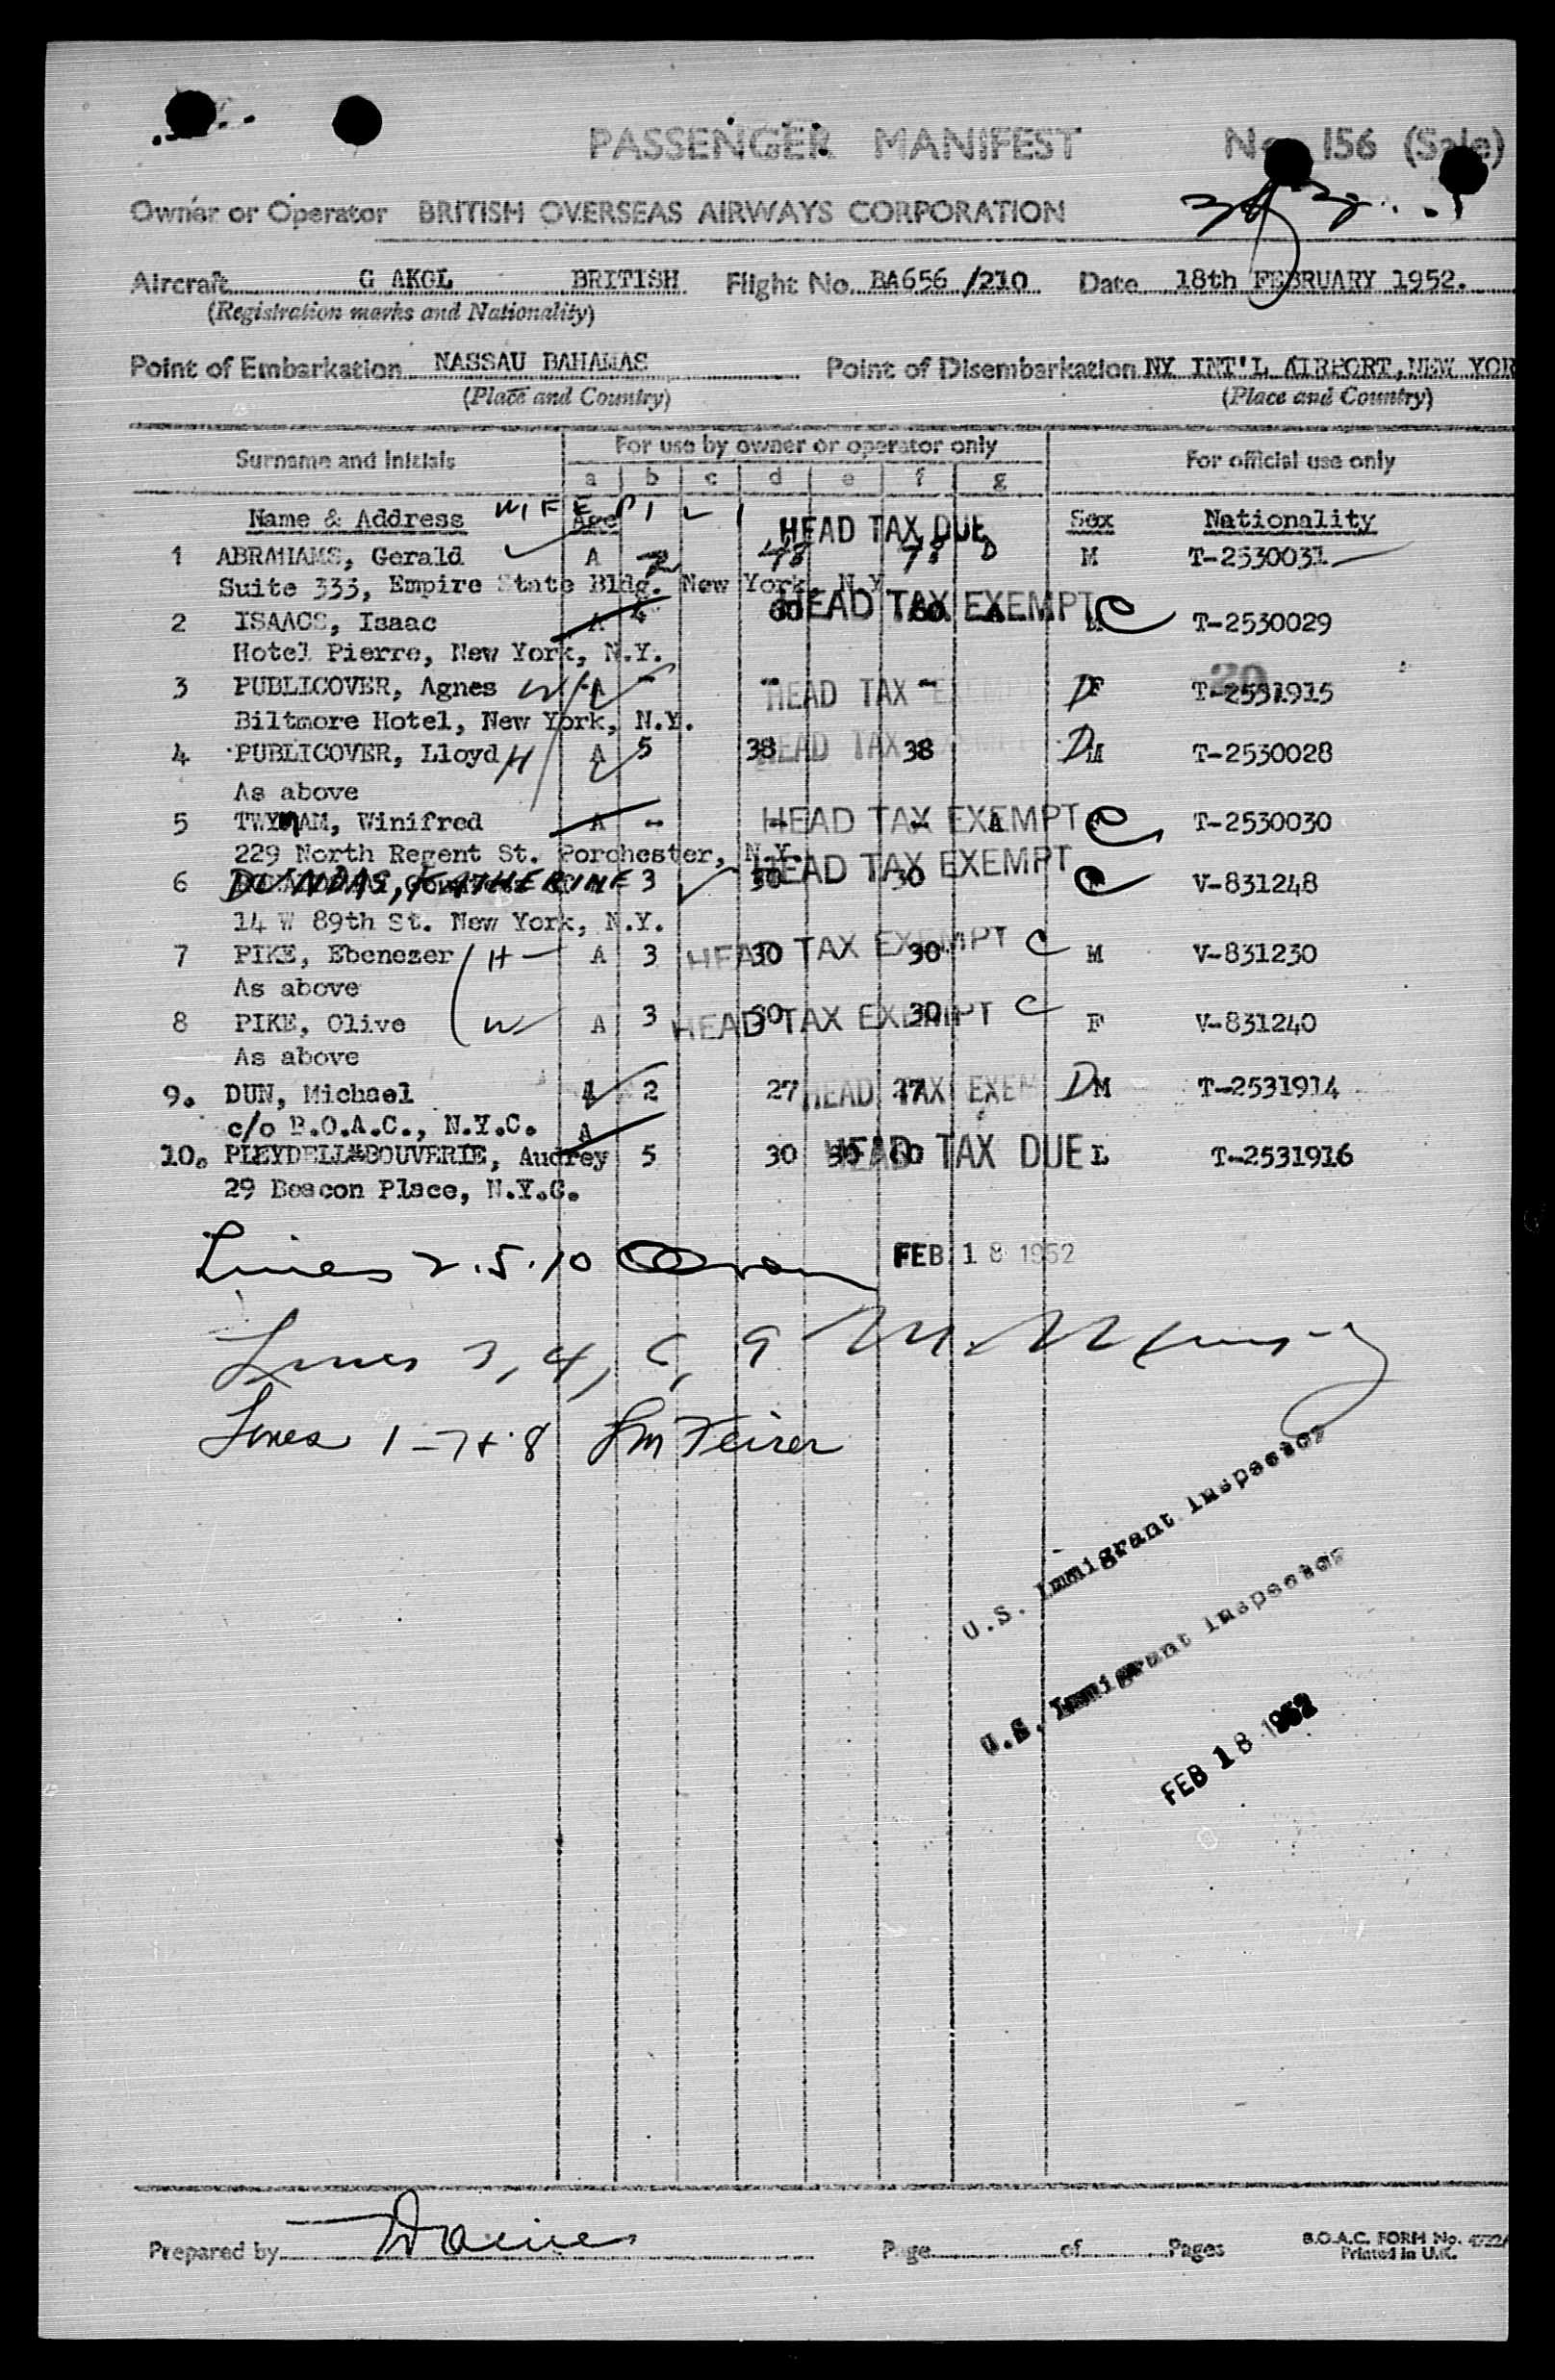 PASSENGER MANIFEST No. 156 (Sale)
Owner or Operator BRITISH OVERSEAS AIRWAYS CORPORATION
Aircraft G AKGL BRITISH Flight No. BA656 /210 Date 18th FEBRUARY 1952.
(Registration marks and Nationality)
Point of Embarkation NASSAU BAHAMAS Point of Disembarkation NY INT'L AIRPORT, NEW YOR
(Place and Country) (Place and Country)
Surname and Initials For use by owner or operator only For official use only
a b c d e f g
Name & Address Age HEAD TAX DUE Sex Nationality
1 ABRAHAMS, Gerald A 48 78 D M T-2530031
Suite 333, Empire State Bldg. New York, N.Y.
HEAD TAX EXEMPT C
2 ISAACS, Isaac A 4 60 60 A M T-2530029
Hotel Pierre, New York, N.Y.
20
3 PUBLICOVER, Agnes W A - - HEAD TAX EXEMPT - D F T-2531915
Biltmore Hotel, New York, N.Y.
4 PUBLICOVER, Lloyd H A 5 38 HEAD TAX EXEMPT 38 D M T-2530028
As above
5 TWYMAM, Winifred A - - HEAD TAX EXEMPT - A C T-2530030
229 North Regent St. Porchester, N.Y.
HEAD TAX EXEMPT
6 DUNDAS, KATHERINE 3 30 30 C V-831248
14 W 89th St. New York, N.Y.
7 PIKE, Ebenezer H A 3 HEAD TAX EXEMPT 30 30 C M V-831230
As above
8 PIKE, Olive W A 3 HEAD TAX EXEMPT 30 30 C F V-831240
As above
9. DUN, Michael A 2 27 HEAD TAX EXEM 27 D M T-2531914
c/o B.O.A.C., N.Y.C. A
10. PLEYDELL-BOUVERIE, Audrey 5 30 30 60 HEAD TAX DUE L T-2531916
29 Beacon Place, N.Y.C.
Lines 2.5.10 FEB 18 1952
Lines 3, 4, 6, 9
Lines 1-7+8
U.S. Immigrant Inspector
U.S. Immigrant Inspector
FEB 18 1952
Prepared by Page of Pages B.O.A.C. FORM No. 4722/
Printed in U.K.